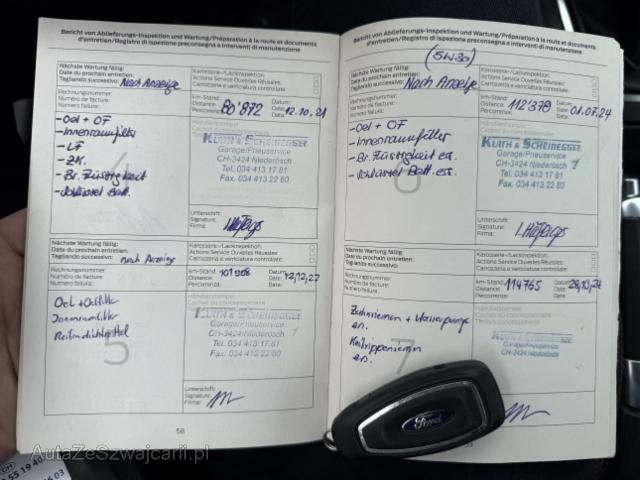 Bericht von Ablieferungs-Inspektion und Wartung/Préparation à la route et documents
d'entretien/Registro di ispezione preconsegna e interventi di manutenzione
Nächste Wartung fällig:
Date du prochain entretien:
Tagliando successivo:
Nach Anzeige
Karosserie-/Lackinspektion:
Actions Service Ouvertes Réusies:
Carrozzeria e verniciatura controllate:
Rechnungsnummer:
Numéro de facture:
Numero fattura:
km-Stand:
Distance:
Percorrenza:
80'872
Datum:
Date:
Data:
12.10.21
- Oel + OF
- Innenraumfilter
- LF
- ZK.
- Br. Flüssigkeit
- Schlüssel Batt.
KURTH & SCHEIDEGGER
Garage/Pneuservice
CH-3424 Niederösch
Tel. 034 413 17 81
Fax. 034 413 22 80
Unterschrift:
Signature:
Firma:
Nächste Wartung fällig:
Date du prochain entretien:
Tagliando successivo:
nach Anzeige
Karosserie-/Lackinspektion:
Actions Service Ouvertes Réusies:
Carrozzeria e verniciatura controllate:
Rechnungsnummer:
Numéro de facture:
Numero fattura:
km-Stand:
Distance:
Percorrenza:
Datum:
Date:
Data:
Oel + Oelfilter
Innenraumfilter
5
KURTH & SCHEIDEGGER
Garage/Pneuservice
CH-3424 Niederösch
Tel. 034 413 17 81
Fax. 034 413 22 80
Unterschrift:
Signature:
Firma:
58
Bericht von Ablieferungs-Inspektion und Wartung/Préparation à la route et documents
d'entretien/Registro di ispezione preconsegna e interventi di manutenzione
(5W30)
Nächste Wartung fällig:
Date du prochain entretien:
Tagliando successivo:
Nach Anzeige
Karosserie-/Lackinspektion:
Actions Service Ouvertes Réusies:
Carrozzeria e verniciatura controllate:
Rechnungsnummer:
Numéro de facture:
Numero fattura:
km-Stand:
Distance:
Percorrenza:
112'378
Datum:
Date:
Data:
01.07.24
- Oel + OF
- Innenraumfilter
- Br. Flüssigkeit er.
- Schlüssel Batt. er.
6
KURTH & SCHEIDEGGER
Garage/Pneuservice
CH-3424 Niederösch
Tel. 034 413 17 81
Fax. 034 413 22 80
Unterschrift:
Signature:
Firma:
Nächste Wartung fällig:
Date du prochain entretien:
Tagliando successivo:
Karosserie-/Lackinspektion:
Actions Service Ouvertes Réusies:
Carrozzeria e verniciatura controllate:
Rechnungsnummer:
Numéro de facture:
Numero fattura:
km-Stand:
Distance:
Percorrenza:
114765
Datum:
Date:
Data:
Zahnriemen + Wasserpumpe
en.
Keilrippenriemen
en.
7
KURTH & SCHEIDEGGER
Garage/Pneuservice
CH-3424 Niederösch
Ford
AutaZeSzwajcarii.pl